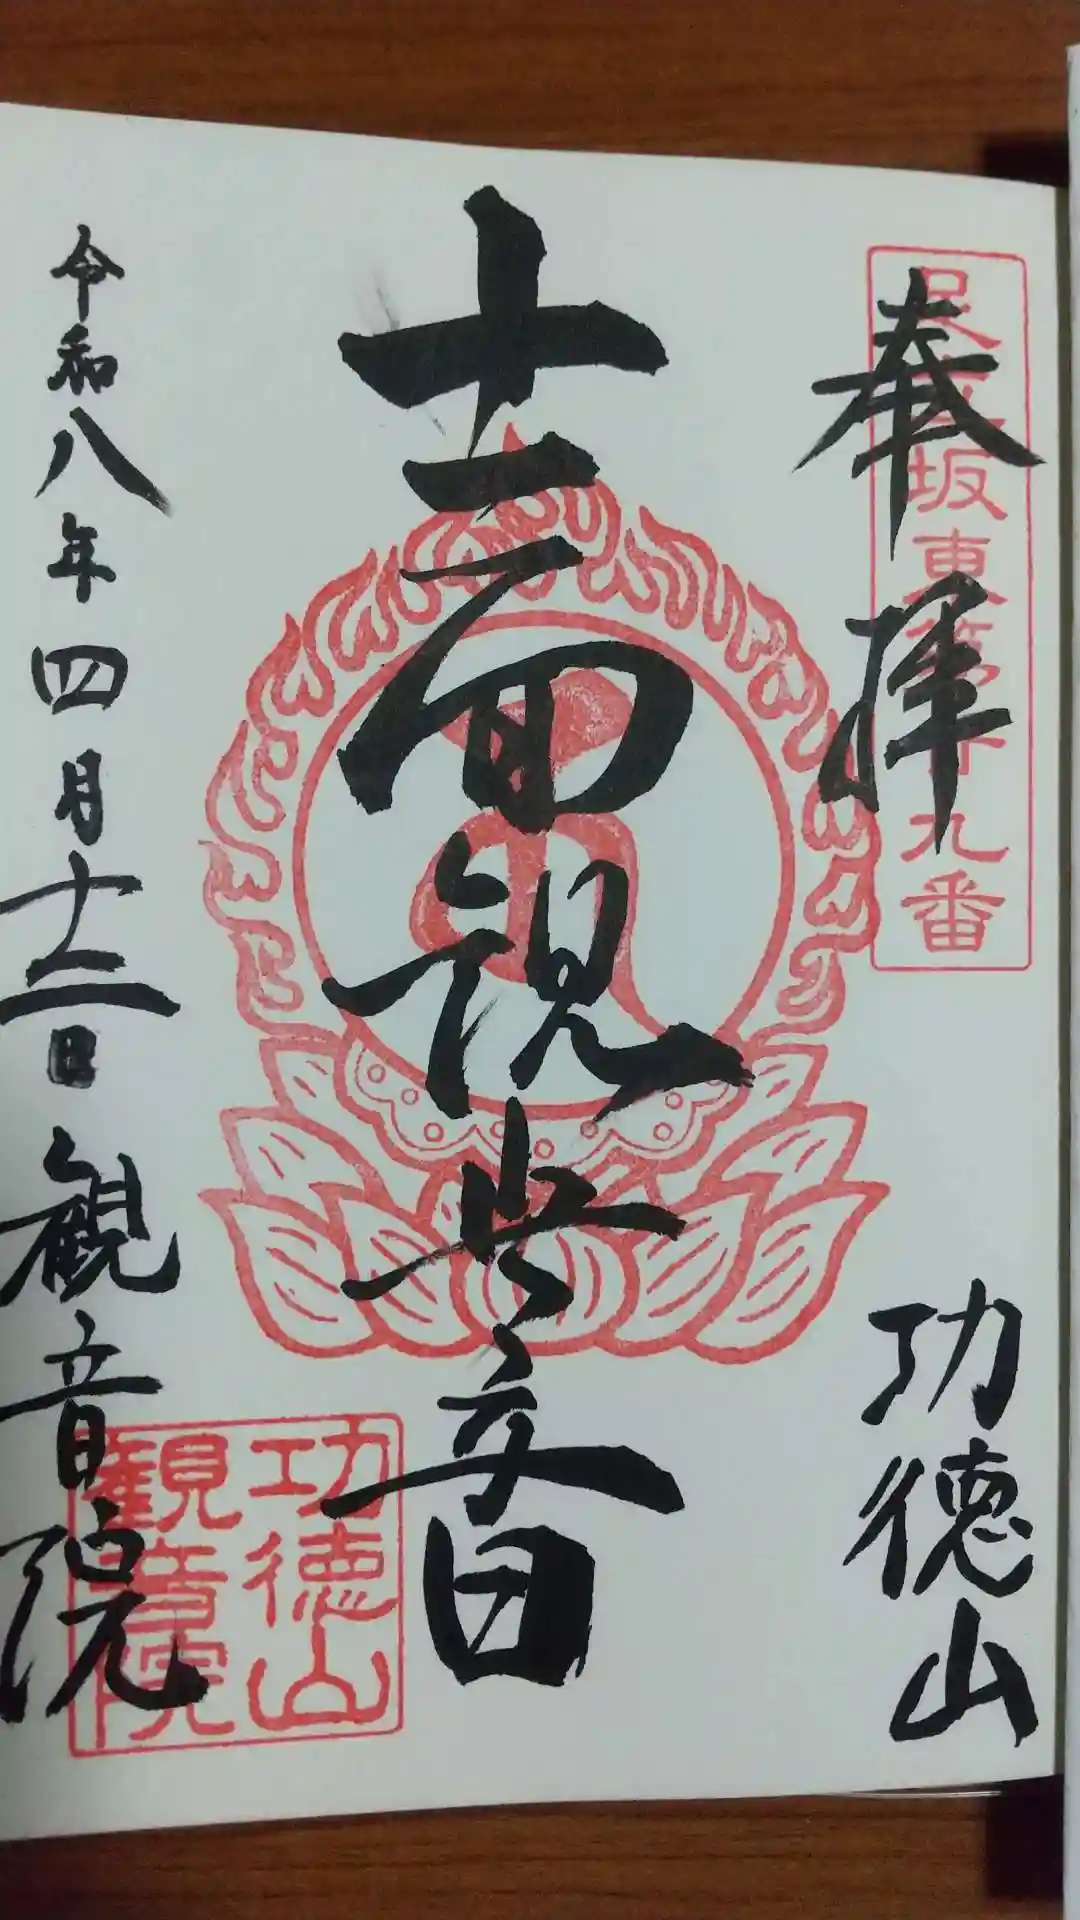 足立坂東第廿九番
奉拝
功徳山
十一面観世音
令和八年四月十二日観音院
功徳山
観音院